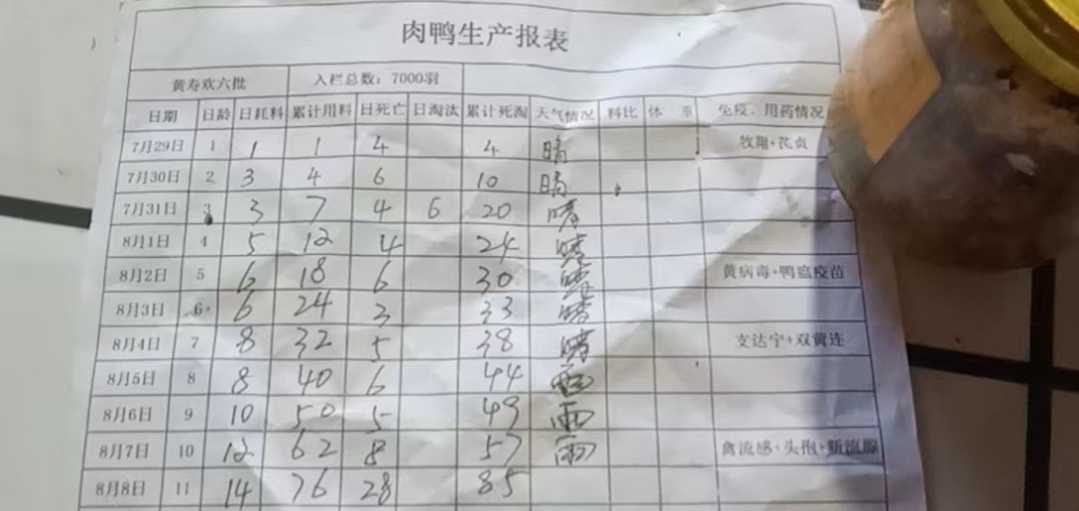 肉鸭生产报表
黄寿欢六批 入栏总数：7000羽
日期 日龄 日耗料 累计用料 日死亡 日淘汰 累计死淘 天气情况 料比 体重 免疫、用药情况
7月29日 1 1 1 4 4 晴 牧翔+芪贞
7月30日 2 3 4 6 10 晴
7月31日 3 3 7 4 6 20 晴
8月1日 4 5 12 4 24 晴
8月2日 5 6 18 6 30 晴 黄病毒+鸭瘟疫苗
8月3日 6 6 24 3 33 晴
8月4日 7 8 32 5 38 晴 支达宁+双黄连
8月5日 8 8 40 6 44
8月6日 9 10 50 5 49 雨
8月7日 10 12 62 8 57 雨 禽流感+头孢+新流腺
8月8日 11 14 76 28 85